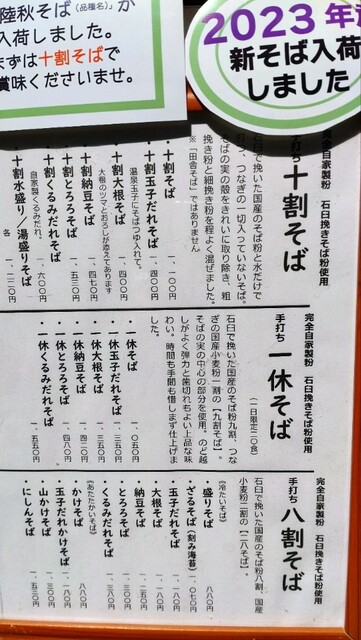 陸秋そば（品種名）」が
入荷しました。
まずは十割そばで
賞味くださいませ。
2023年
新そば入荷
しました
完全自家製粉　石臼挽きそば粉使用
手打ち 十割そば
石臼で挽いた国産のそば粉と水だけで
打つ、つなぎの一切入っていないそば。
そばの実の殻をきれいに取り除き、粗
挽き粉と細挽き粉を程よく混ぜました。
※「田舎そば」ではありません。
・十割そば 一、一〇〇
・十割玉子だれそば 一、四〇〇
温泉玉子にそばつゆ入れて。
・十割大根そば 一、四〇〇
大根のツマとおろしが添えてあります
・十割納豆そば 一、四七〇
・十割とろろそば 一、五三〇
・十割くるみだれそば 一、六〇〇
自家製くるみだれ。
・十割水盛り／湯盛りそば 各 一、二一〇
完全自家製粉　石臼挽きそば粉使用
手打ち 一休そば （一日限定20食）
石臼で挽いた国産のそば粉九割、つな
ぎの国産小麦粉一割の【九割そば】。
そばの実の中心の部分を使用。のど越
しがよく弾力と歯切れもよい上品な味
わい。時間も手間も惜しまず仕上げま
した。
・一休そば 一、〇五〇
・一休玉子だれそば 一、三五〇
・一休大根そば 一、三五〇
・一休納豆そば 一、四二〇
・一休とろろそば 一、四八〇
・一休くるみだれそば 一、五五〇
完全自家製粉　石臼挽きそば粉使用
手打ち 八割そば
石臼で挽いた国産のそば粉八割、国産
小麦粉二割の【二八そば】。
《冷たいそば》
・盛りそば 八八〇
・ざるそば（刻み海苔） 一、〇七〇
・玉子だれそば 一、一八〇
・大根そば 一、一八〇
・納豆そば 一、二五〇
・とろろそば 一、三一〇
・くるみだれそば 一、三八〇
《あたたかいそば》
・かけそば 八八〇
・玉子だれかけそば 一、一八〇
・山かけそば 一、三一〇
・にしんそば 一、五三〇